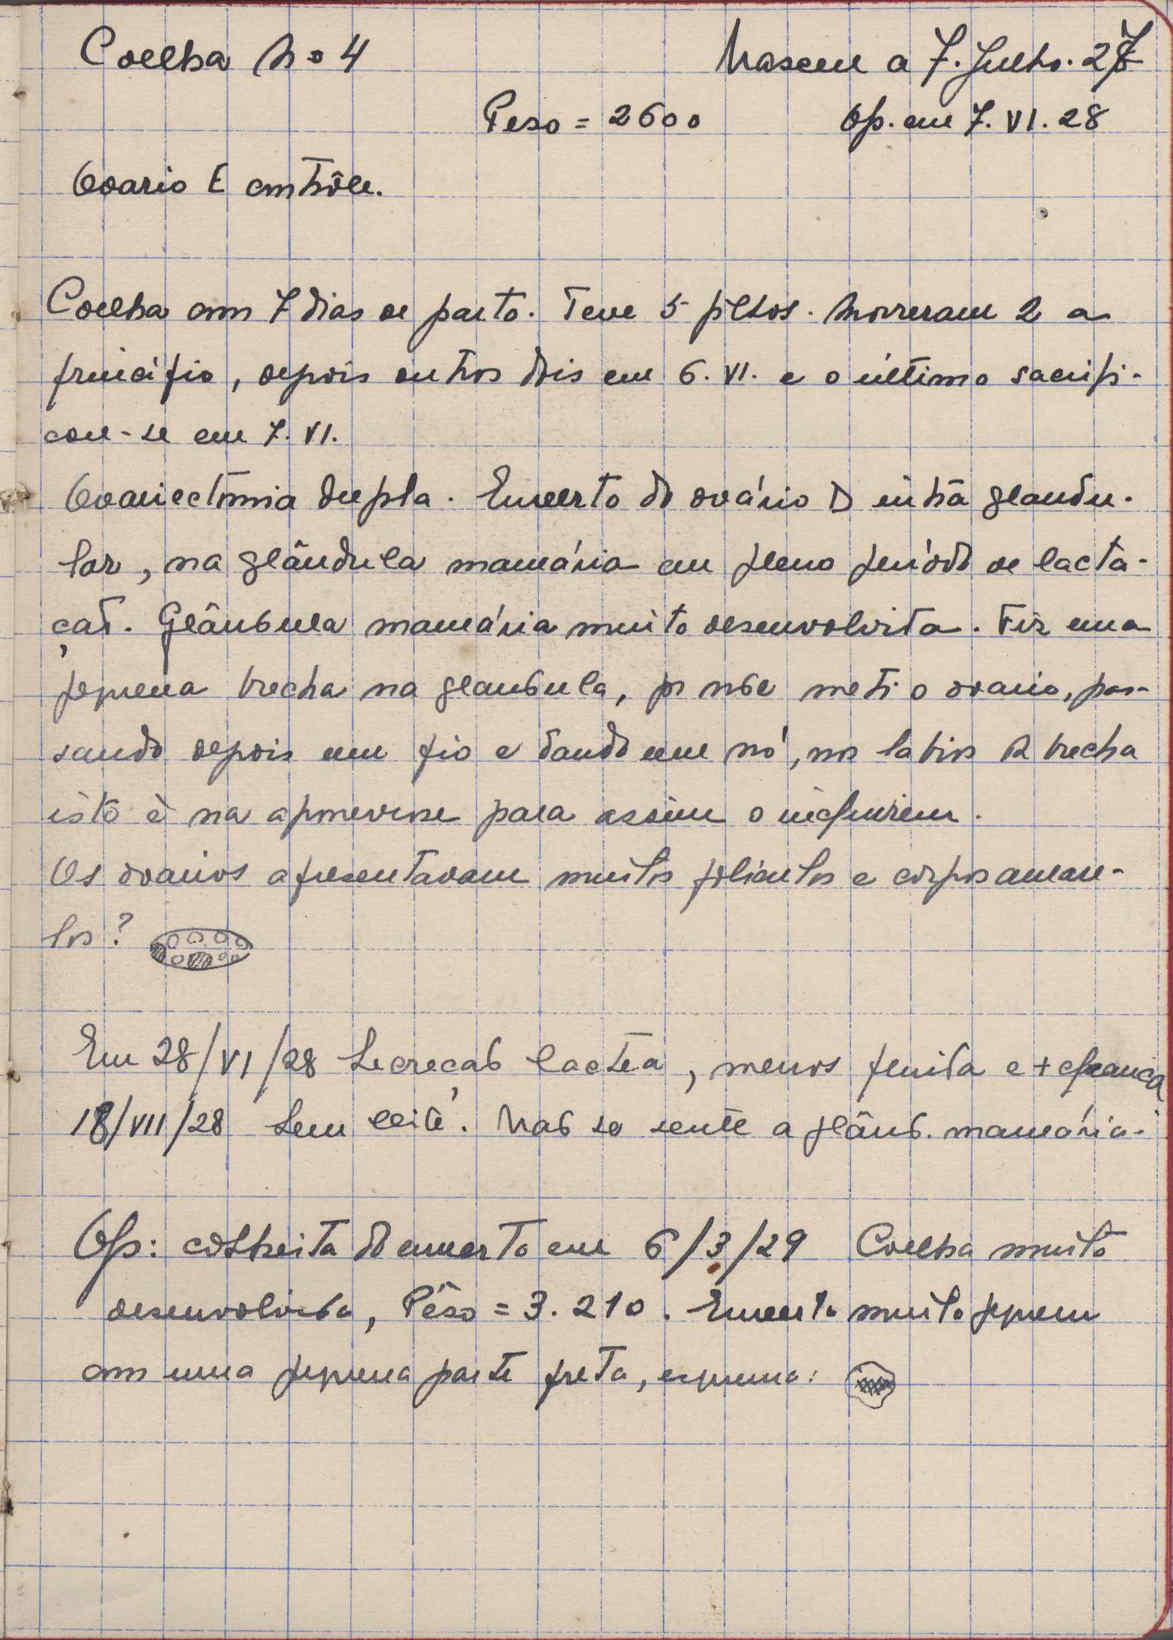 Coelha no 4
Nasceu a 7. Julho. 27
Peso = 2600
Op. em 7. VI. 28
Ovario E contrôle.
Coelha com 7 dias de parto. Teve 5 filhos. Morreram 2 a
principio, depois outros dois em 6. VI. e o último sacrifi-
cou-se em 7. VI.
Ovariectomia dupla. Enxerto do ovário D intra glandu-
lar, na glândula mamária em pleno período de lacta-
ção. Glândula mamária muito desenvolvida. Fiz uma
pequena brecha na glandula, por onde meti o ovario, pas-
sando depois um fio e dando um nó, nos labios da brecha
isto é na aponevrose para assim o incluirem.
Os ovarios apresentavam muitos foliculos e corpos amare-
los?
Em 28/VI/28 Secreção lactea, menos fluida e +
18/VII/28 Sem leite. Não se sente a glând. mamária.
Op: colheita do enxerto em 6/3/29 Coelha muito
desenvolvida, Pêso = 3.210. Enxerto muito pequeno
com uma pequena parte preta, esquema: